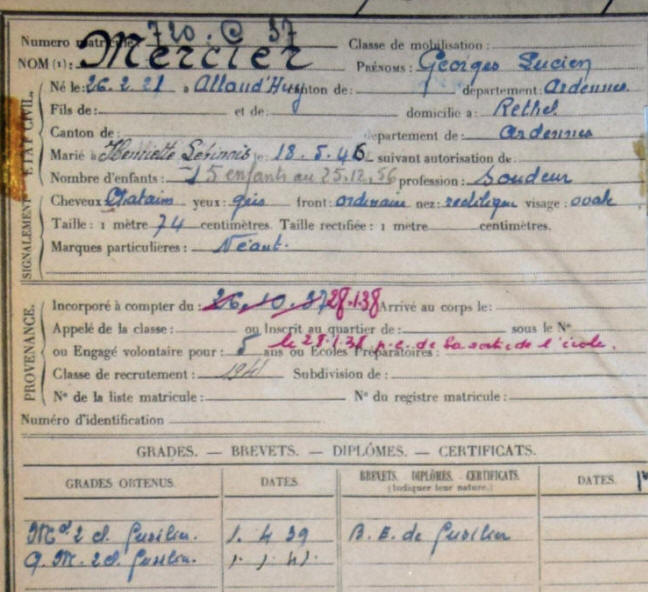 Numero matricule: 720. C 37 Classe de mobilisation:
NOM (1): Mercier PRÉNOMS: Georges Lucien
ETAT CIVIL.
Né le: 26.2.21 à canton de: département: Ardennes
Fils de: et de: domicilié à: Rethel
Canton de: département de: Ardennes
Marié à Henriette le: 18.5.46 suivant autorisation de:
Nombre d'enfants: 5 enfants au 25.12.56 profession: Soudeur
SIGNALEMENT
Cheveux Chatains yeux: gris front: ordinaire nez: rectiligne visage: ovale
Taille: 1 mètre 74 centimètres. Taille rectifiée: 1 mètre centimètres.
Marques particulières: Néant.
PROVENANCE.
Incorporé à compter du: 26.10.37 28.1.38 Arrivé au corps le:
Appelé de la classe: ou Inscrit au quartier de: sous le N°
le 28.1.38 p.c. de la sortie de l'école.
ou Engagé volontaire pour: 5 ans ou Ecoles Préparatoires:
Classe de recrutement: 1941 Subdivision de:
N° de la liste matricule: N° du registre matricule:
Numéro d'identification
GRADES. — BREVETS. — DIPLÔMES. — CERTIFICATS.
GRADES OBTENUS. DATES BREVETS. DIPLÔMES. CERTIFICATS. DATES.
(Indiquer leur nature.)
Mot 2 cl. fusilier. 1. 4 39 B. E. de fusilier
Q. M. 2 cl. fusilier. 1. 1. 41.